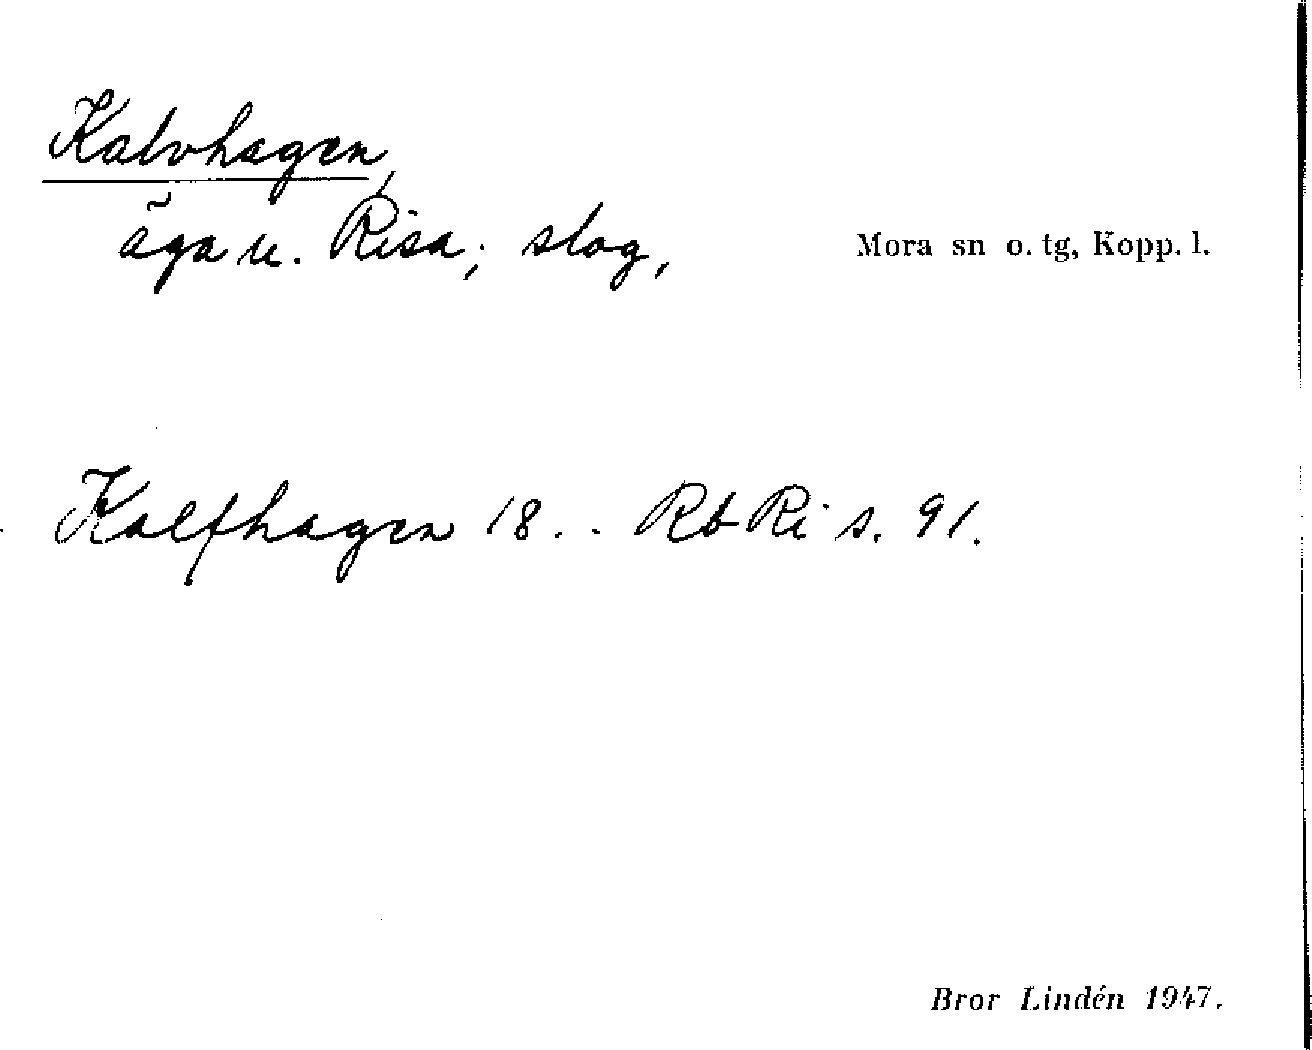 Kalvhagen,
äga u. Risa; slog,
Mora sn o. tg, Kopp. l.
Kalfhagen 18.. RbRi s. 91.
Bror Lindén 1947.